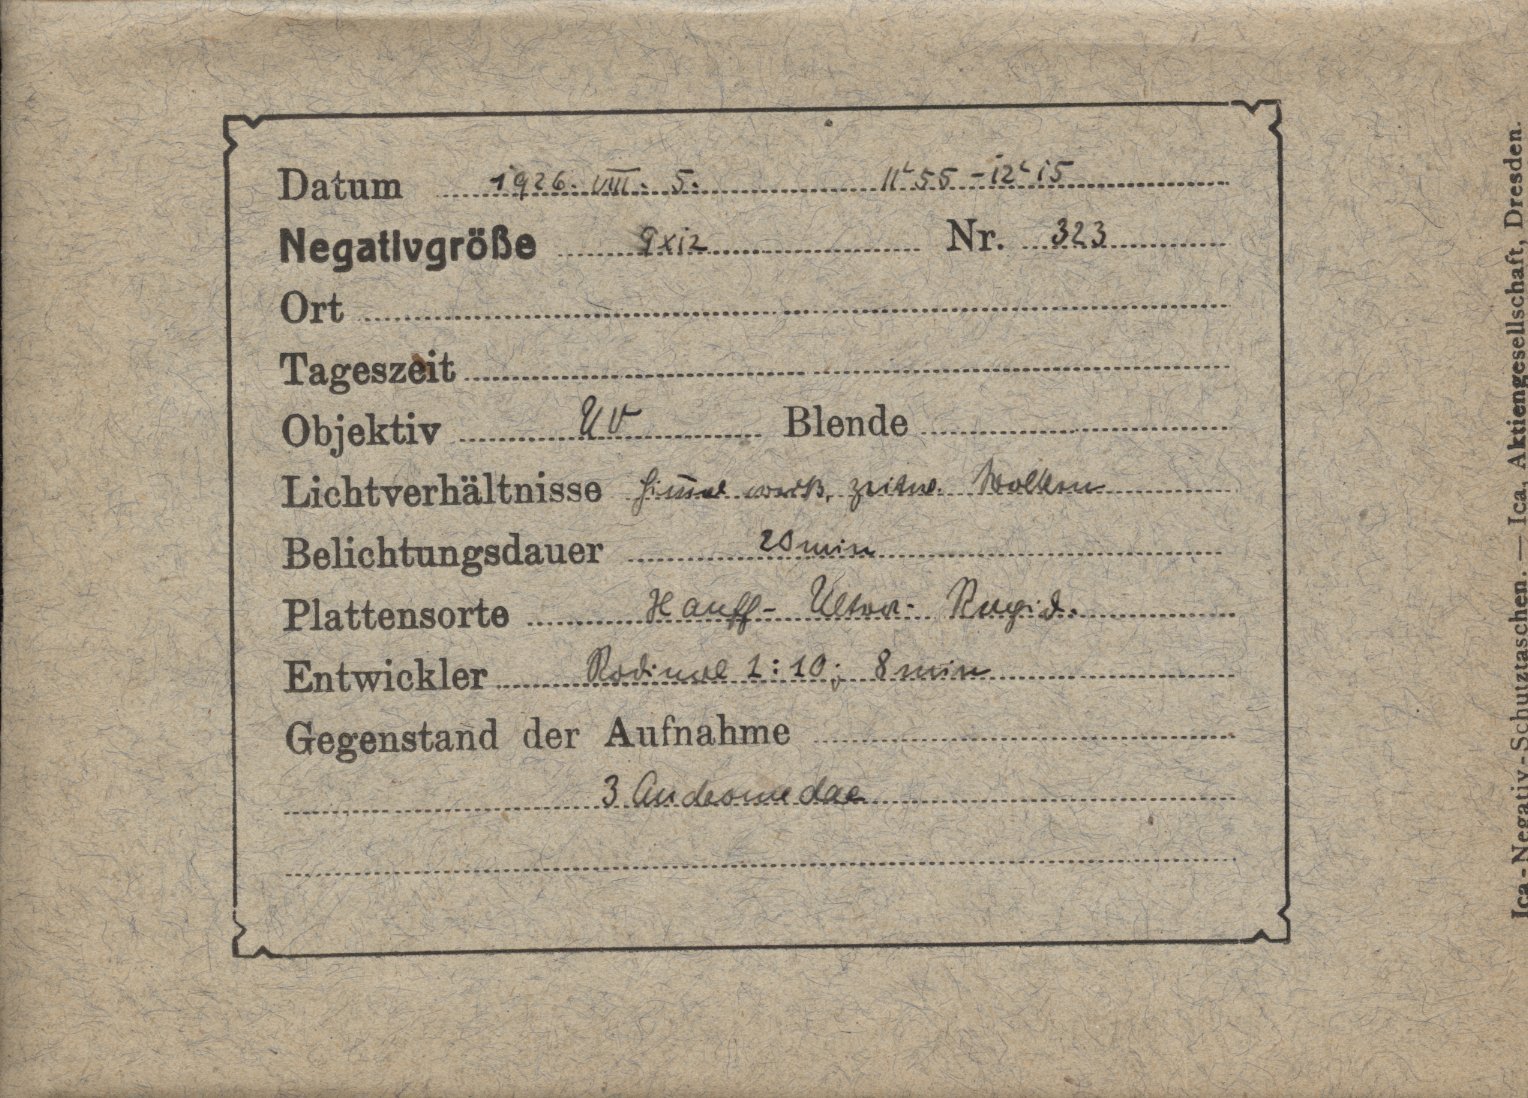 Datum 1926. VIII. 5. 11h 55 - 12h 15
Negativgröße 9x12 Nr. 323
Ort
Tageszeit
Objektiv UV Blende
Lichtverhältnisse zeitw. Wolken
Belichtungsdauer 20 min
Plattensorte Hauff- Ultra- Rapid.
Entwickler Rodinal 1:10; 8 min
Gegenstand der Aufnahme
3 Andromedae
Ica-Negativ-Schutztaschen. — Ica, Aktiengesellschaft, Dresden.